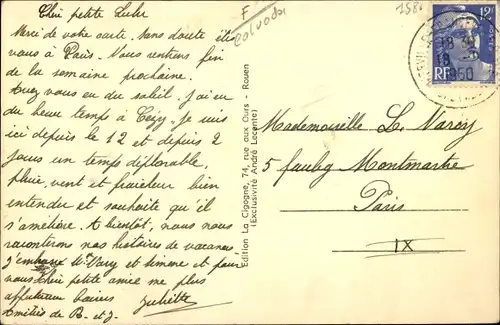 Chère petite Lulu
Merci de votre carte. Sans doute êtes
vous à Paris. Nous rentrons fin
de la semaine prochaine.
Avez vous eu du soleil. J'ai eu
du beau temps à Je suis
ici depuis le 12 et depuis 2
jours un temps déplorable,
pluie, vent et fraicheur bien
entendu et souhaite qu'il
s'améliore. A bientôt, nous nous
raconterons nos histoires de vacances,
J'embrasse et Simone et pour
vous chère petite amie mes plus
affectueux baisers Juliette
Amitiés de R. et J.
F
Calvados
Edition La Cigogne, 74, rue aux Ours - Rouen
(Exclusivité André Lecente)
12F
POSTES
RF
18 30
18 - 8
1950
Mademoiselle L. Varoy
5 faubg Montmartre
Paris
IX